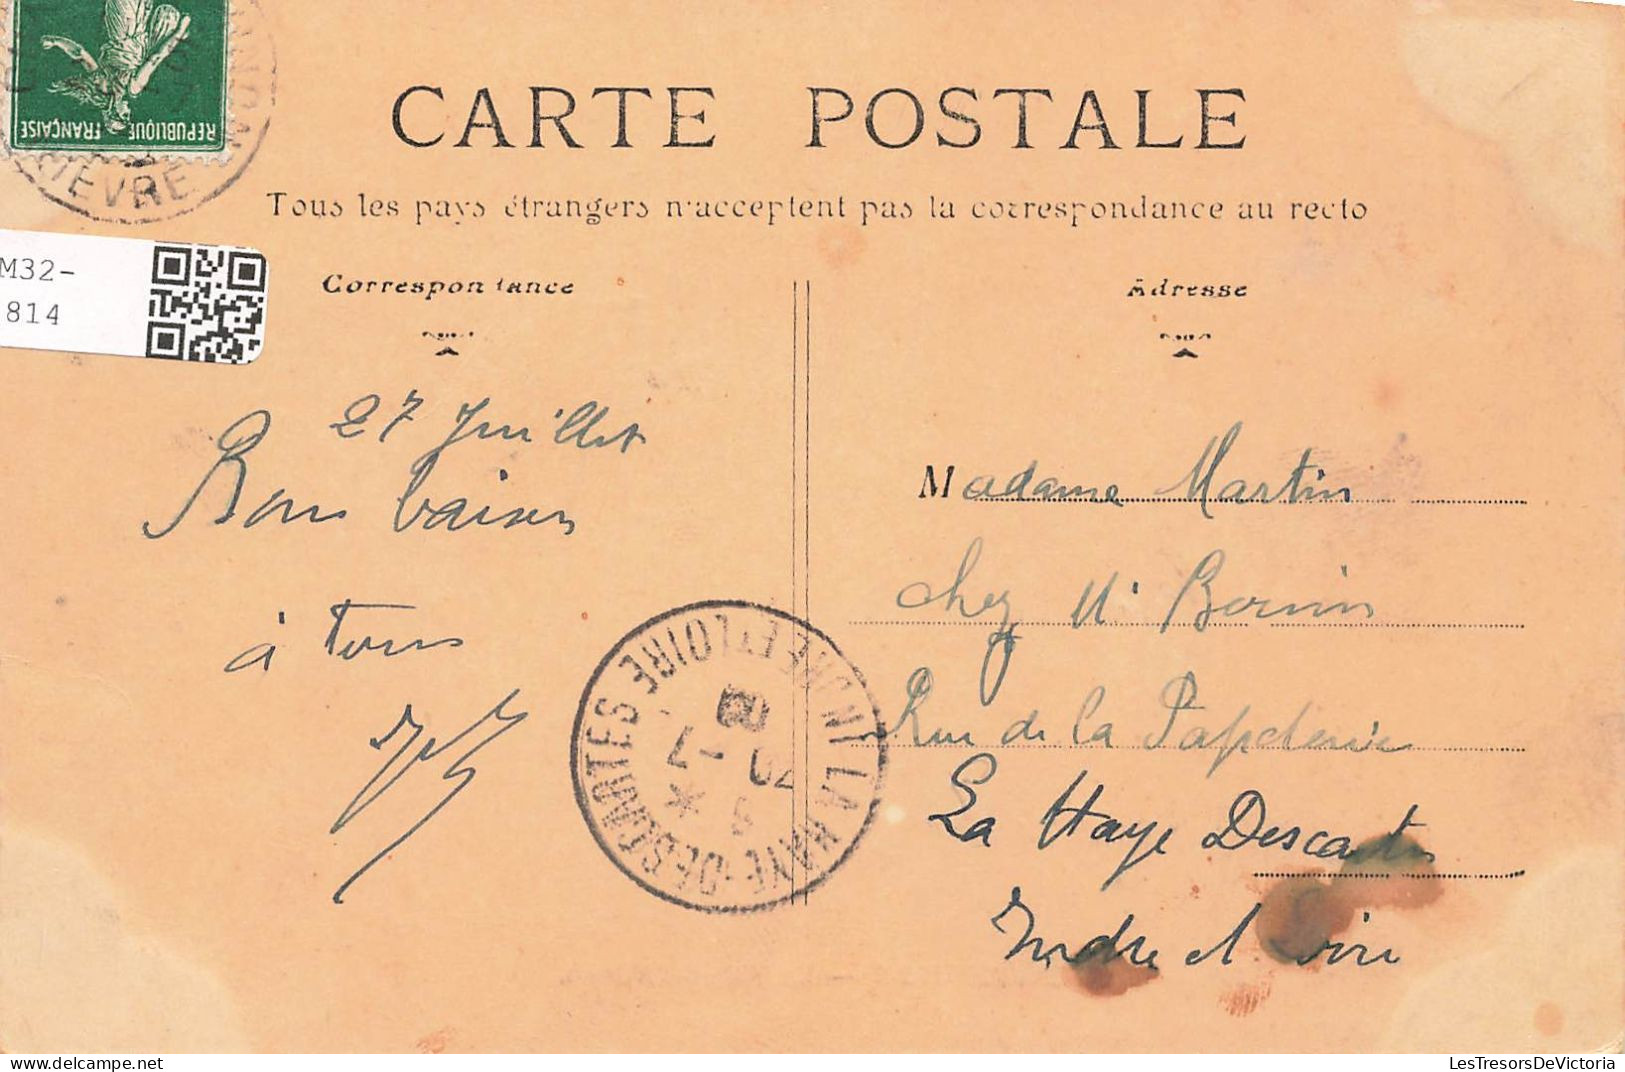 REPUBLIQUE FRANÇAISE
NIEVRE
CARTE POSTALE
Tous les pays étrangers n'acceptent pas la correspondance au recto
M32-
814
Correspondance
Adresse
27 Juillet
Bons baisers
à tous
Madame Martin
chez Mr
Rue de la Papeterie
La Haye Descartes
Indre et Loire
LA HAYE-DESCARTES INDRE ET LOIRE
LesTresorsDeVictoria